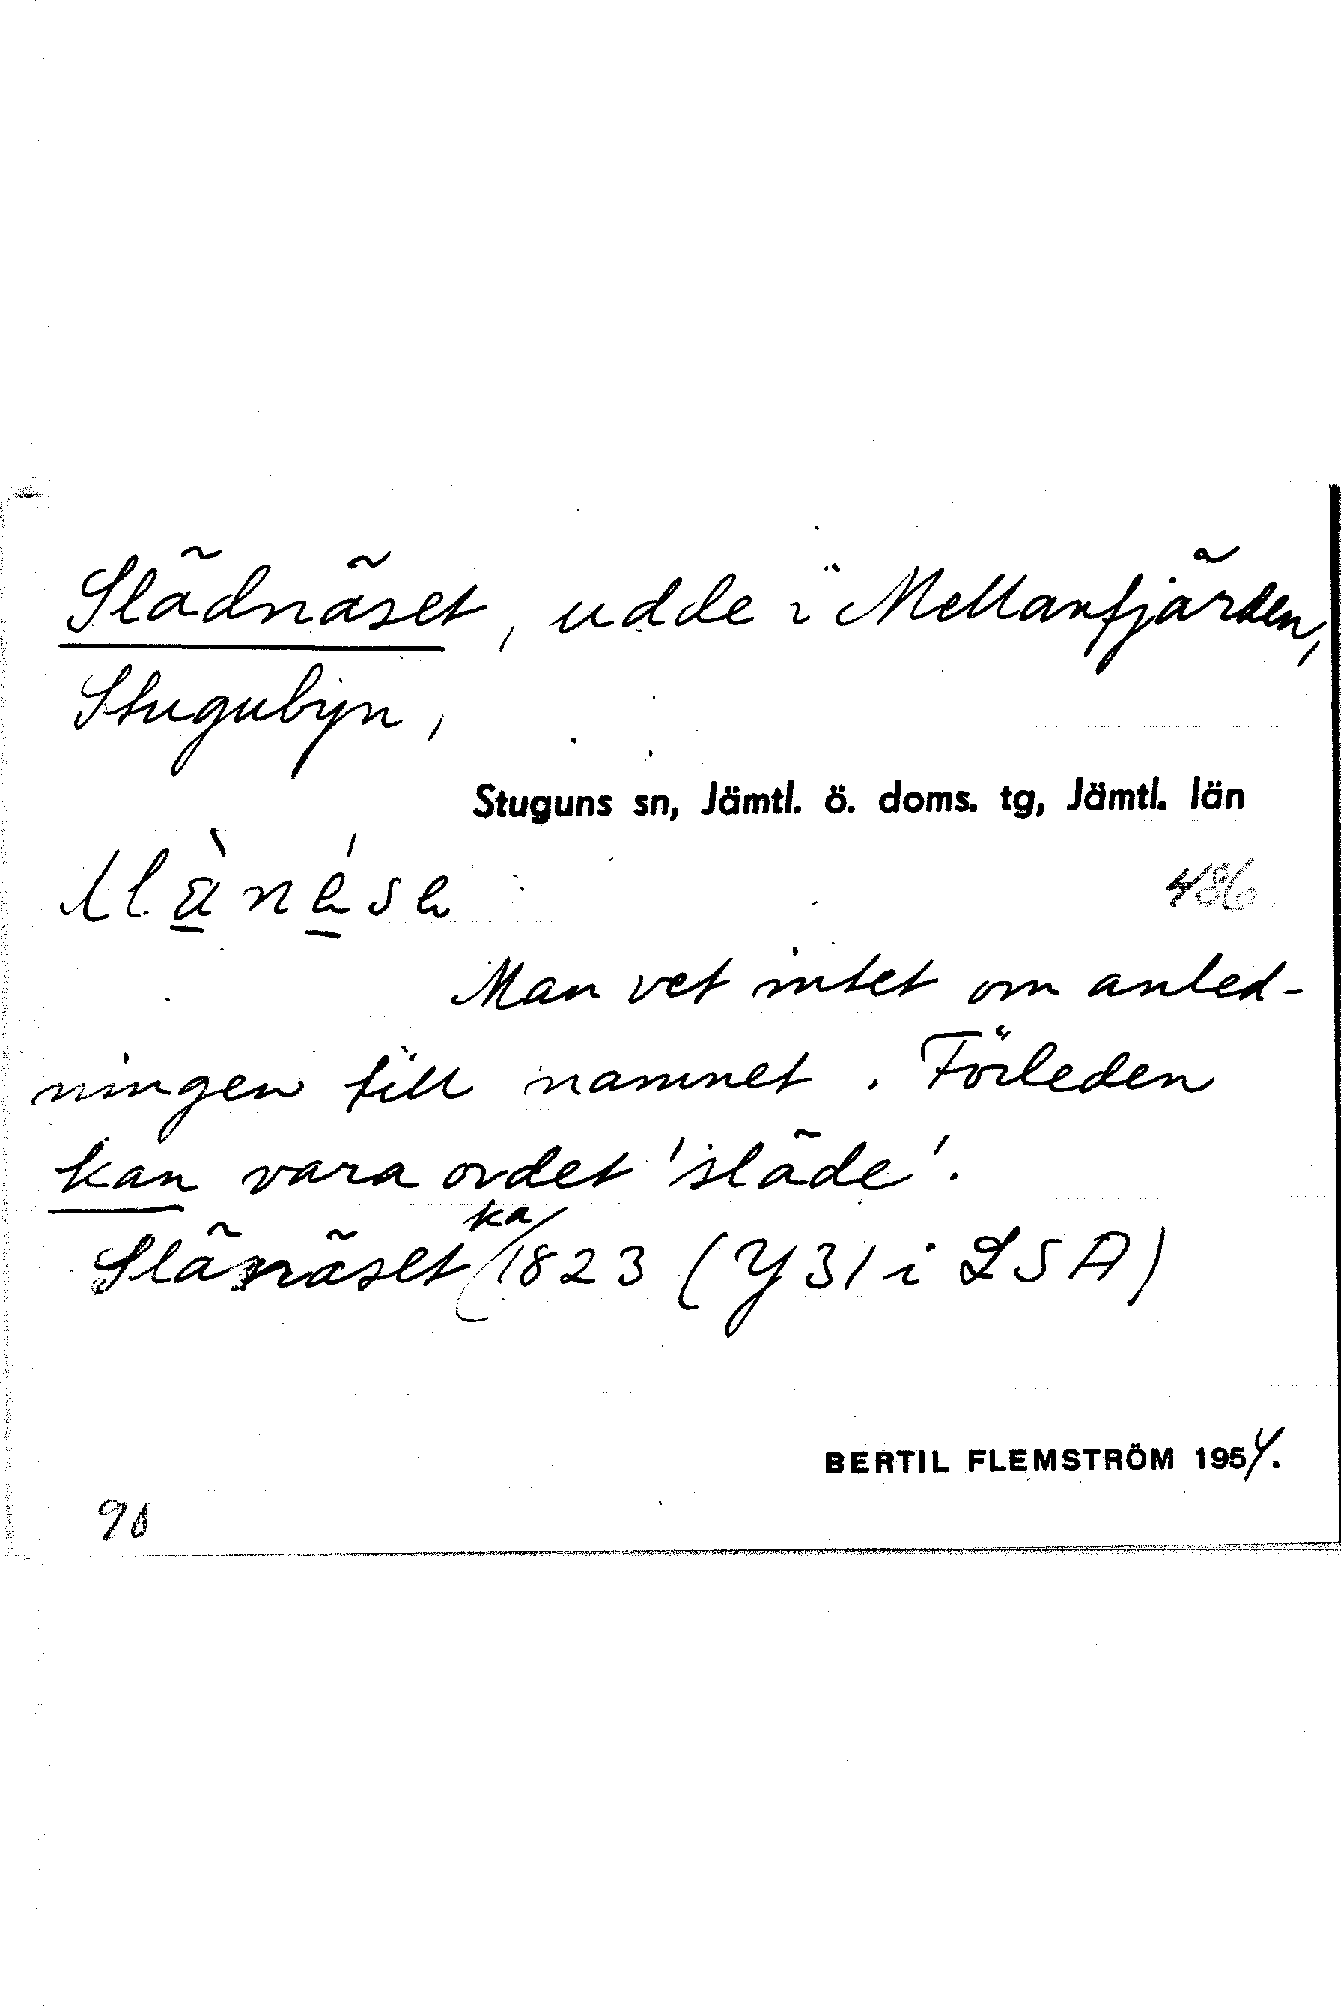 Slädnäset, udde i Mellanfjärden,
Stugubyn,
Stuguns sn, Jämtl. ö. doms. tg, Jämtl. län
486
Man vet intet om anled-
ningen till namnet. Förleden
kan vara ordet 'släde'.
Slänäset ka 1823 (Y31 i LSA)
BERTIL FLEMSTRÖM 1954.